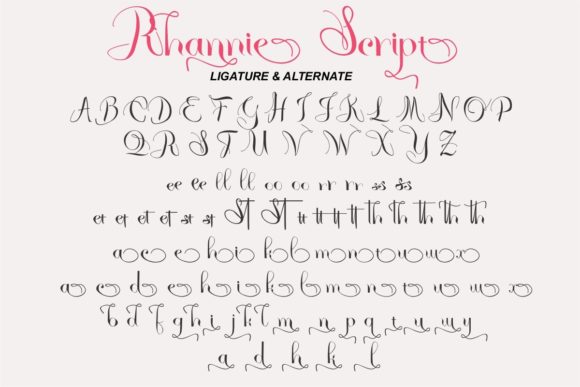 Rhannie Script
LIGATURE & ALTERNATE
A B C D E F G H I J K L M N O P
Q R S T U V W X Y Z
ee ee ll ll oo oo rr rr ss ss
et et et et st st ST ST tt tt tt tt th th th th th
a c e h i k l m n o t u w x
a c d e h i k l m n o t u w x
b d f g h i j k l m n p q t u w y
a d h k l